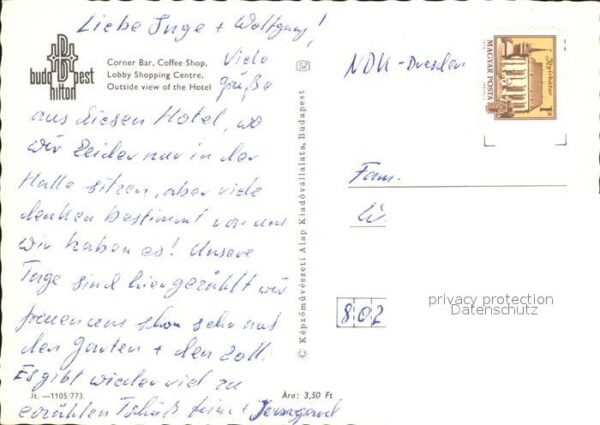 Liebe Inge + Wolfgang!
budapest
hilton
Corner Bar, Coffee Shop,
Lobby Shopping Centre,
Outside view of the Hotel
Viele
Grüße
aus diesem Hotel, wo
wir leider nur in der
Halle sitzen, aber viele
denken bestimmt von uns
wir haben es! Unsere
Tage sind hier gezählt wir
freuen uns schon sehr auf
den Garten + den Zoll.
Es gibt wieder viel zu
erzählen Tschüß + Irmgard
Jt. —1105/773.
Ára: 3,50 Ft
© Képzőművészeti Alap Kiadóvállalata, Budapest
MAGYAR POSTA
1 Ft
NDK - Dresden
Fam.
802
privacy protection
Datenschutz